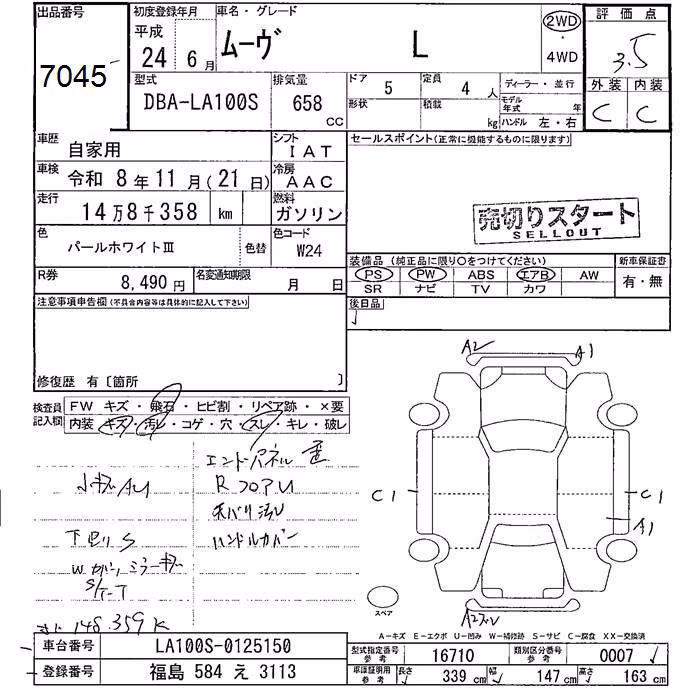 出品番号
7045
初度登録年月
平成
24年 6月
車名・グレード
ムーヴ L
2WD
・
4WD
評価点
3.5
外装 内装
C C
型式
DBA-LA100S
排気量
658
CC
ドア 5
形状
定員 4人
積載 kg
ディーラー・並行
モデル年式 年
ハンドル 左・右
車歴
自家用
シフト
IAT
車検
令和 8年11月(21日)
冷房
AAC
走行
14万8千358 km
燃料
ガソリン
色
パールホワイトⅢ
色替
色コード
W24
R券
8,490円
名変通知期限
月 日
セールスポイント(正常に機能するものに限ります)
売切りスタート
SELLOUT
装備品(純正品に限り○をつけてください)
PS PW ABS エアB AW
SR ナビ TV カワ
新車保証書
有・無
後日品
注意事項申告欄(不具合内容等は具体的に記入して下さい)
修復歴 有〔箇所 〕
検査員記入欄
FW キズ・飛石・ヒビ割・リペア跡・×要
内装 キズ・汚レ・コゲ・穴・スレ・キレ・破レ
エンドパネル
小キズAU
RフロアU
下回りS
ハンドルカバー
S/T-T
148.359K
A2 A1
C1 C1
A1
スペア
A−キズ E−エクボ U−凹み W−補修跡 S−サビ C−腐食 XX−交換済
車台番号
LA100S-0125150
登録番号
福島 584 え 3113
型式指定番号 参考
16710
類別区分番号 参考
0007
車庫証明用 参考
長さ 339 cm
幅 147 cm
高さ 163 cm